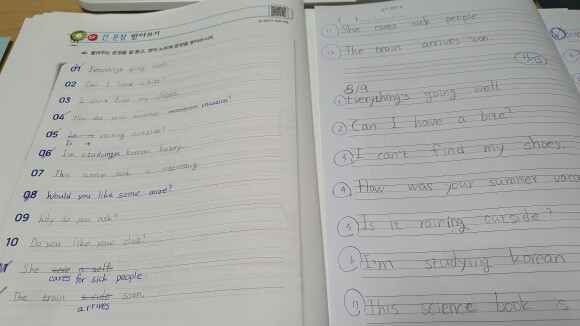 전 문장 받아쓰기
01 Everything's going well.
02 Can I have a bite?
03 I can't find my shoes.
04 How was your summer vacation?
05 Is it raining outside?
06 I'm studying Korean history.
07 This science book is interesting.
08 Would you like some more?
09 Why do you ask?
10 Do you like your club?
She
cares for sick people.
The train soon.
arrives
11 She cares sick people
12 The train arrives soon.
8/9
1 Everything's going well
2 Can I have a bite?
3 I can't find my shoes.
4 How was your summer vaca
5 Is it raining outside?
6 I'm studying Korean
7 This science book is